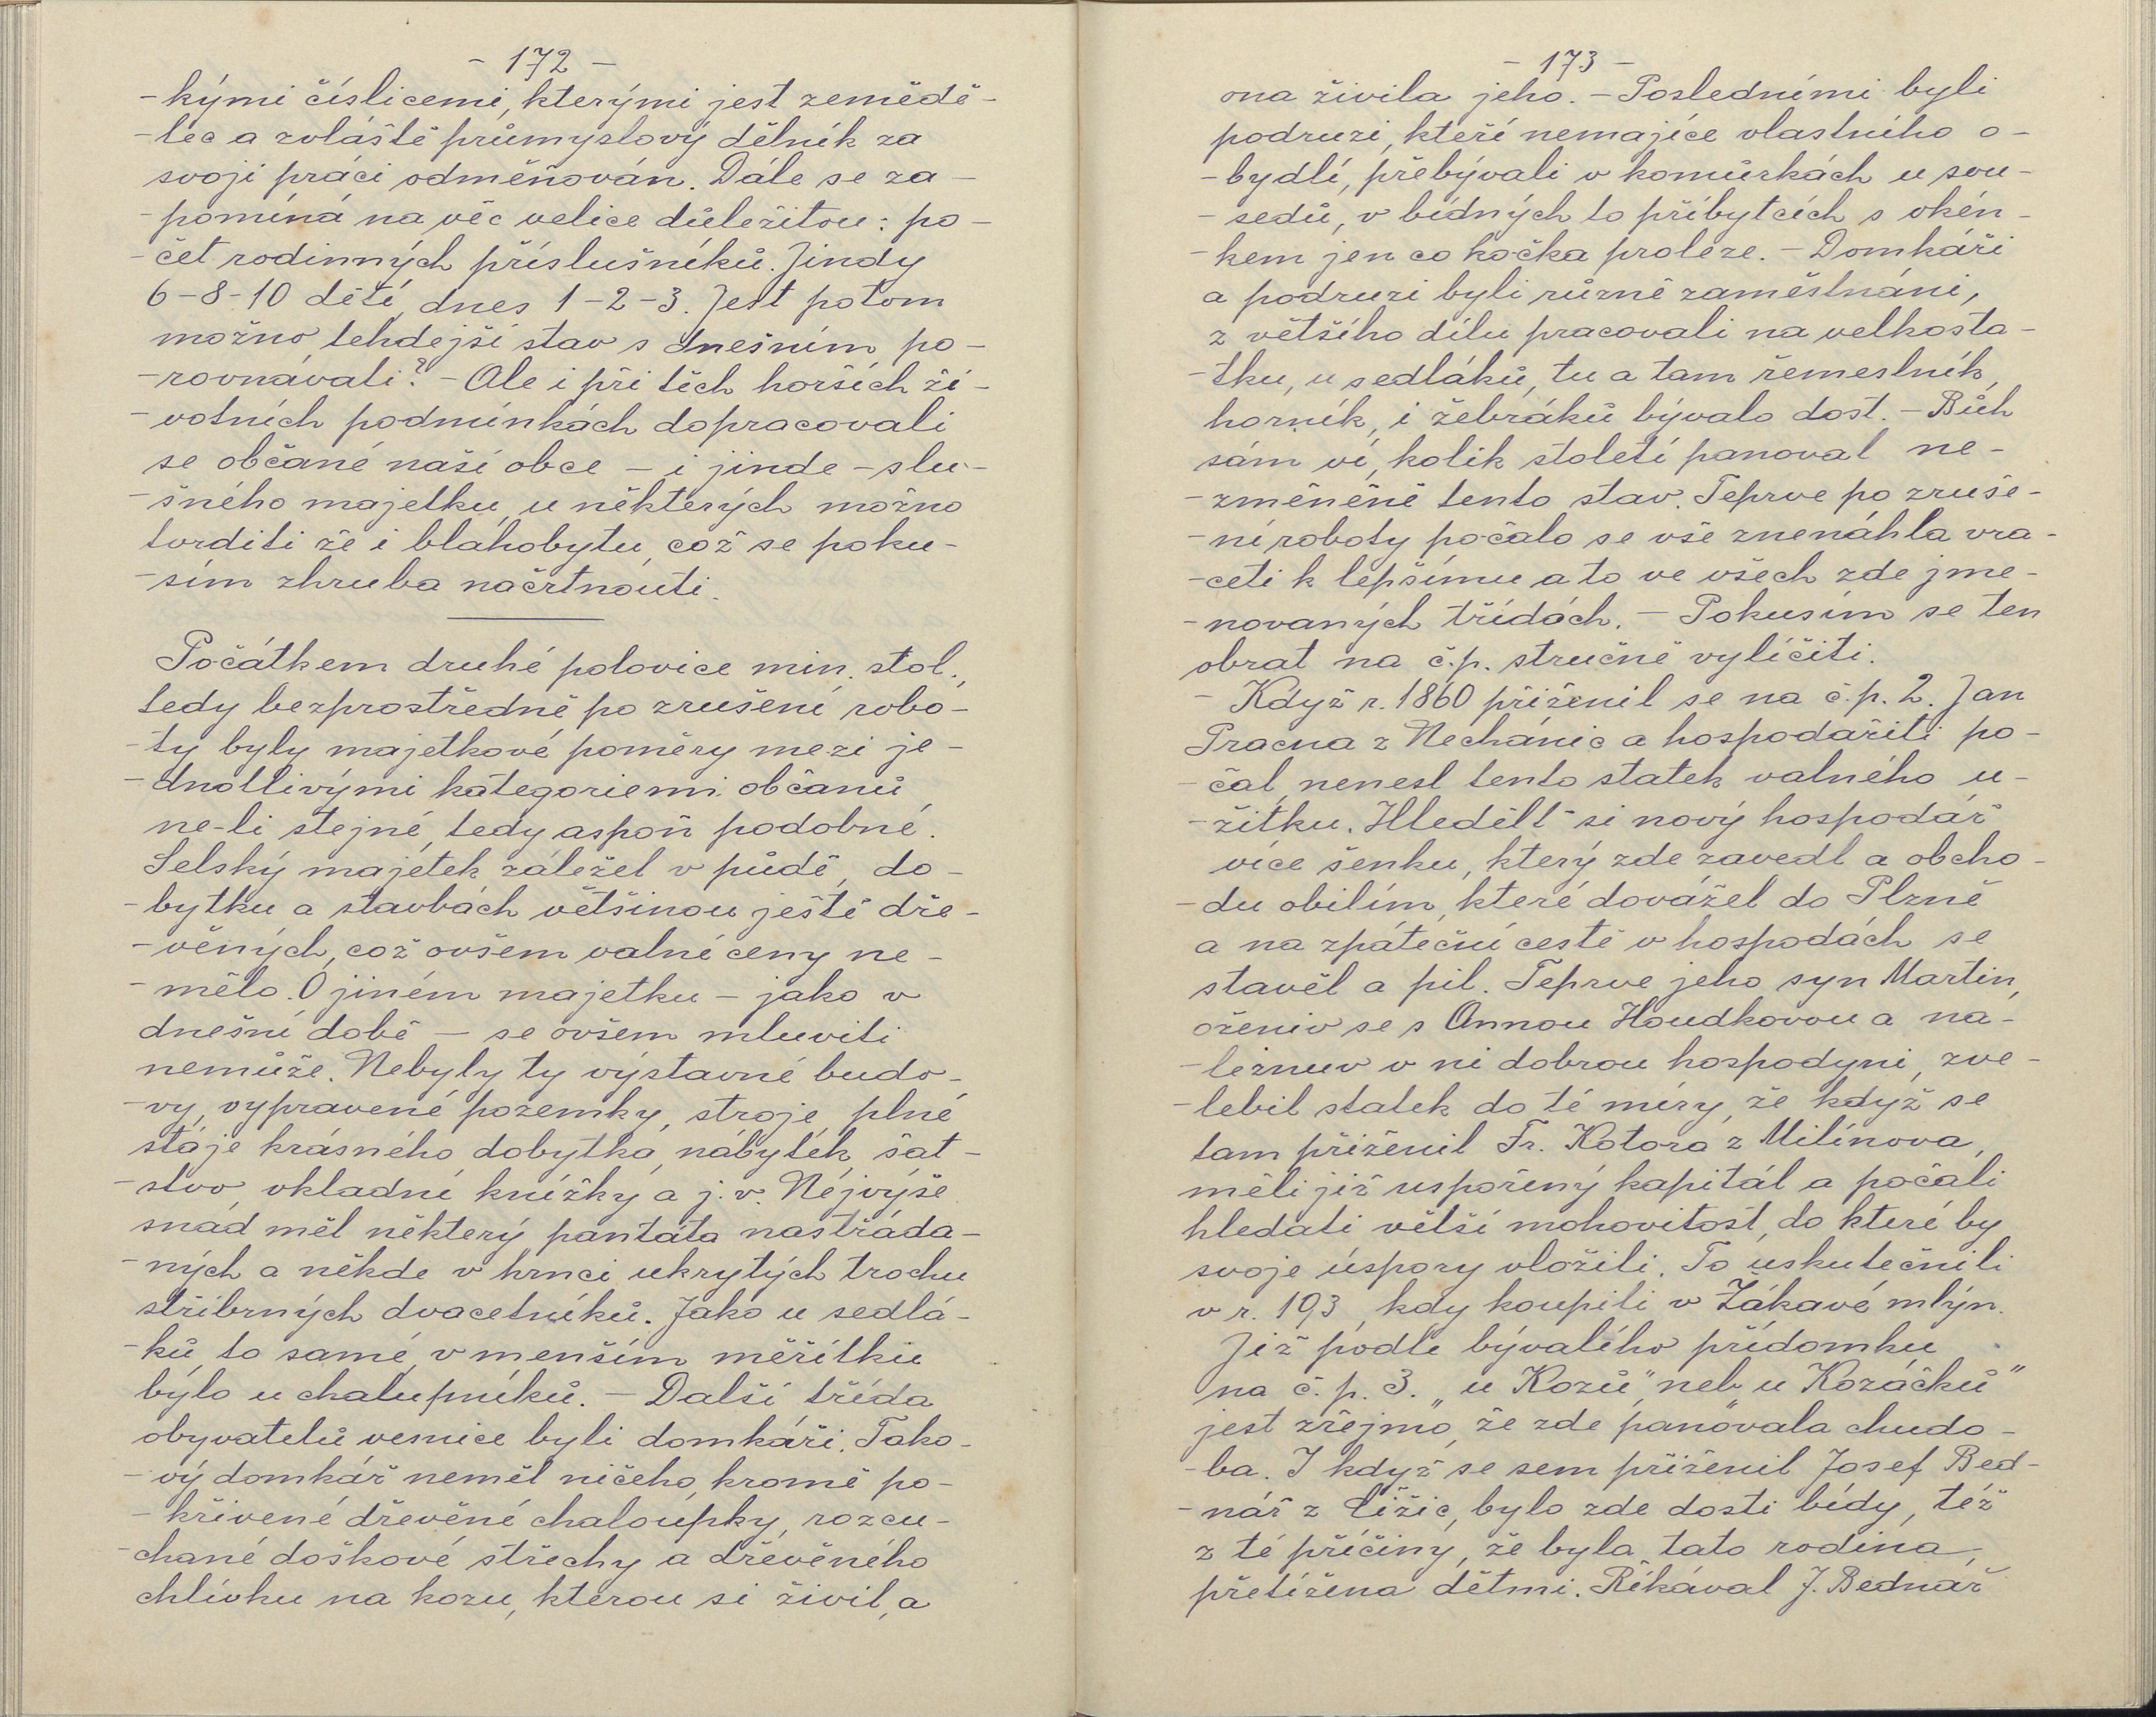 - 172 -
-kými číslicemi, kterými jest zemědě-
-lec a zvláště průmyslový dělník za
svoji práci odměňován. Dále se za-
-pomíná na věc velice důležitou: po-
-čet rodinných příslušníků. Jindy
6-8-10 dětí, dnes 1-2-3. Jest potom
možno tehdejší stav s dnešním po-
-rovnávati? - Ale i při těch horších ži-
-votních podmínkách dopracovali
se občané naší obce - i jinde - slu-
-šného majetku, u některých možno
tvrditi že i blahobytu, což se poku-
-sím zhruba načrtnouti.
Počátkem druhé polovice min. stol.,
tedy bezprostředně po zrušení robo-
-ty byly majetkové poměry mezi je-
-dnotlivými kategoriemi občanů,
ne-li stejné, tedy aspoň podobné.
Selský majetek záležel v půdě, do-
-bytku a stavbách většinou ještě dře-
-věných, což ovšem valné ceny ne-
-mělo. O jiném majetku - jako v
dnešní době - se ovšem mluviti
nemůže. Nebyly ty výstavné budo-
-vy, vypravené pozemky, stroje, plné
stáje krásného dobytka, nábytek, šat-
-stvo, vkladní knížky a j. v. Nejvýše
snad měl některý pantáta nastřáda-
-ných a někde v hrnci ukrytých trochu
stříbrných dvacetníků. Jako u sedlá-
-ků, to samé v menším měřítku
bylo u chalupníků. - Další třída
obyvatelů vesnice byli domkáři. Tako-
-vý domkář neměl ničeho, kromě po-
-křivené dřevěné chaloupky, rozcu-
-chané doškové střechy a dřevěného
chlívku na kozu, kterou si živil, a
- 173 -
ona živila jeho. - Posledními byli
podruzi, kteří nemajíce vlastního o-
-bydlí, přebývali v komůrkách u sou-
-sedů, v bídných to příbytcích s okén-
-kem jen co kočka proleze. - Domkáři
a podruzi byli různě zaměstnáni,
z většího dílu pracovali na velkosta-
-tku, u sedláků, tu a tam řemeslník,
horník, i žebráků bývalo dost. - Bůh
sám ví, kolik století panoval ne-
-změněně tento stav. Teprve po zruše-
-ní roboty počalo se vše znenáhla vra-
-ceti k lepšímu a to ve všech zde jme-
-novaných třídách. - Pokusím se ten
obrat na č.p. stručně vylíčiti.
- Když r. 1860 přiženil se na č.p. 2. Jan
Pracna z Nechánic a hospodařiti po-
-čal, nenesl tento statek valného u-
-žitku. Hleděltˇ si nový hospodář
více šenku, který zde zavedl a obcho-
-du obilím, které dovážel do Plzně
a na zpáteční cestě v hospodách se
stavěl a pil. Teprve jeho syn Martin,
oženiv se s Annou Houdkovou a na-
-leznuv v ní dobrou hospodyni, zve-
-lebil statek do té míry, že když se
tam přiženil Fr. Kotora z Milínova,
měli již uspořený kapitál a počali
hledati větší mohovitost, do které by
svoje úspory vložili. To uskutečnili
v r. 193 , kdy koupili v Žákavé mlýn.
Již podle bývalého přídomku
na č. p. 3. „u Kozů“, neb „u Kozáčků“
jest zřejmo, že zde panovala chudo-
-ba. I když se sem přiženil Josef Bed-
-nář z Čižic, bylo zde dosti bídy, též
z té příčiny, že byla tato rodina,
přetížena dětmi. Říkával J. Bednář